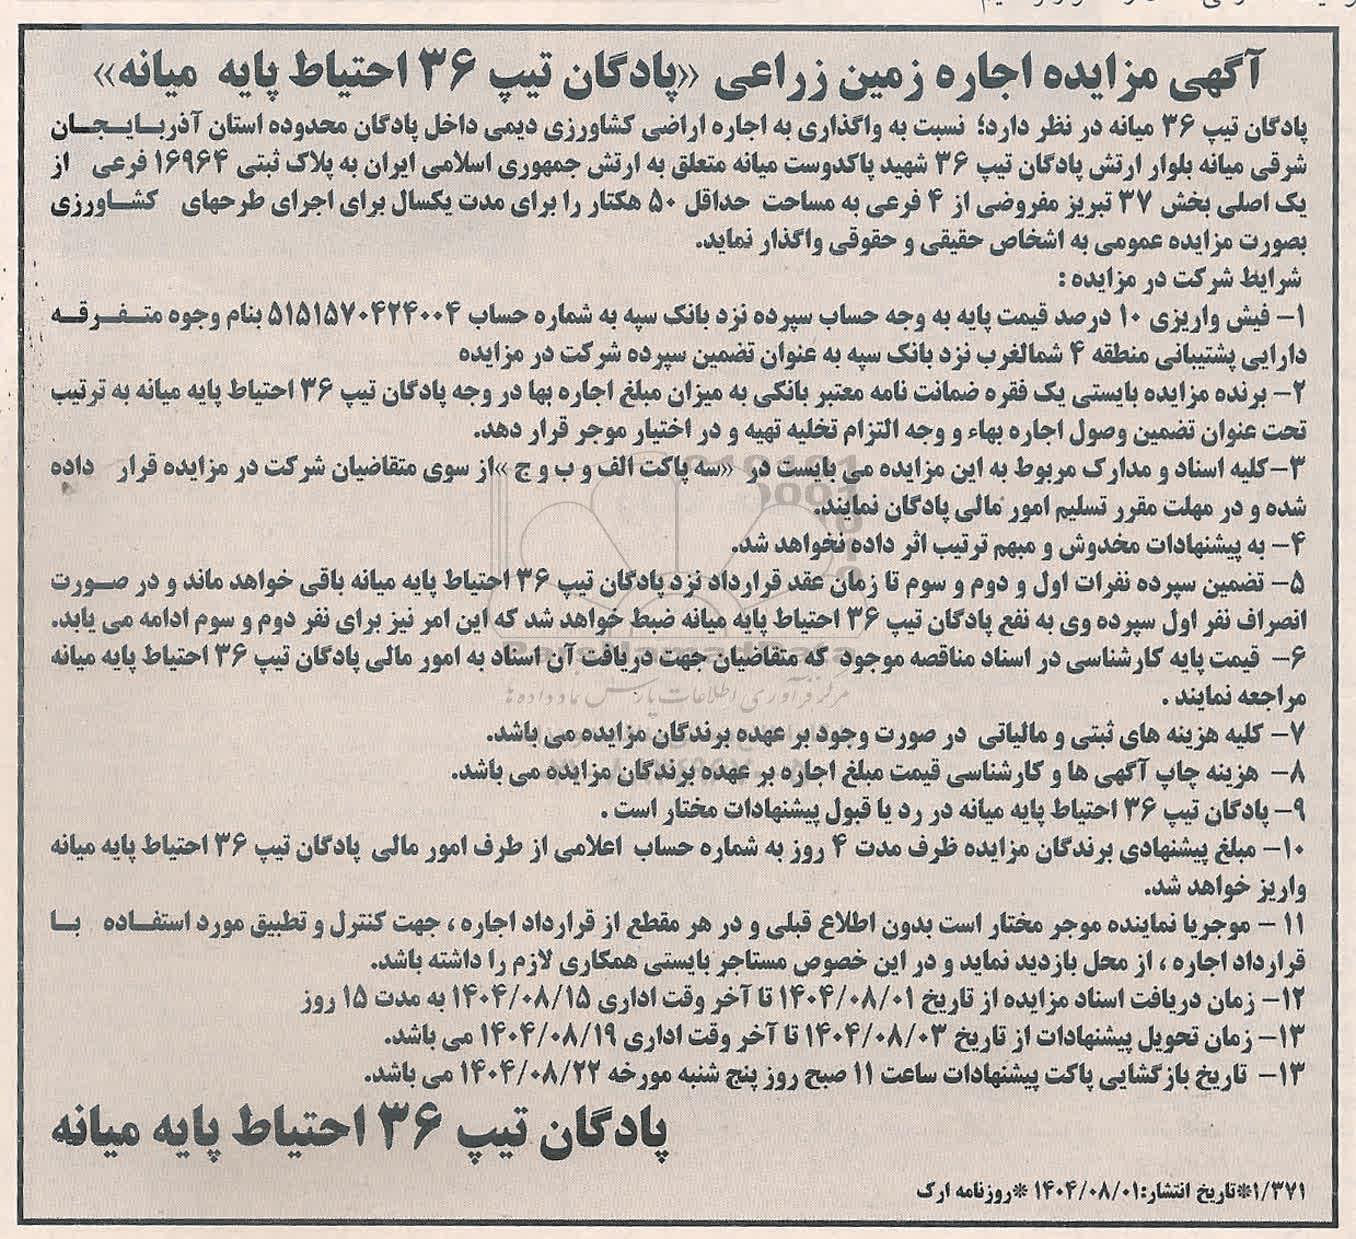 آگهی مزایده اجاره زمین زراعی «پادگان تیپ ۳۶ احتیاط پایه میانه»
پادگان تیپ ۳۶ میانه در نظر دارد؛ نسبت به واگذاری به اجاره اراضی کشاورزی دیمی داخل پادگان محدوده استان آذربایجان
شرقی میانه بلوار ارتش پادگان تیپ ۳۶ شهید پاکدوست میانه متعلق به ارتش جمهوری اسلامی ایران به پلاک ثبتی ۱۶۹۶۴ فرعی از
یک اصلی بخش ۳۷ تبریز مفروضی از ۴ فرعی به مساحت حداقل ۵۰ هکتار را برای مدت یکسال برای اجرای طرحهای کشاورزی
بصورت مزایده عمومی به اشخاص حقیقی و حقوقی واگذار نماید.
شرایط شرکت در مزایده :
۱- فیش واریزی ۱۰ درصد قیمت پایه به وجه حساب سپرده نزد بانک سپه به شماره حساب ۵۱۵۱۵۷۰۴۲۴۰۰۴ بنام وجوه متفرقه
دارایی پشتیبانی منطقه ۴ شمالغرب نزد بانک سپه به عنوان تضمین سپرده شرکت در مزایده
۲- برنده مزایده بایستی یک فقره ضمانت نامه معتبر بانکی به میزان مبلغ اجاره بها در وجه پادگان تیپ ۳۶ احتیاط پایه میانه به ترتیب
تحت عنوان تضمین وصول اجاره بهاء و وجه التزام تخلیه تهیه و در اختیار موجر قرار دهد.
۳-کلیه اسناد و مدارک مربوط به این مزایده می بایست در «سه پاکت الف و ب و ج »از سوی متقاضیان شرکت در مزایده قرار داده
شده و در مهلت مقرر تسلیم امور مالی پادگان نمایند.
۴- به پیشنهادات مخدوش و مبهم ترتیب اثر داده نخواهد شد.
۵- تضمین سپرده نفرات اول و دوم و سوم تا زمان عقد قرارداد نزد پادگان تیپ ۳۶ احتیاط پایه میانه باقی خواهد ماند و در صورت
انصراف نفر اول سپرده وی به نفع پادگان تیپ ۳۶ احتیاط پایه میانه ضبط خواهد شد که این امر نیز برای نفر دوم و سوم ادامه می یابد.
۶- قیمت پایه کارشناسی در اسناد مناقصه موجود که متقاضیان جهت دریافت آن اسناد به امور مالی پادگان تیپ ۳۶ احتیاط پایه میانه
مراجعه نمایند .
مرکز فرآوری اطلاعات پارس نماد داده ها
۷- کلیه هزینه های ثبتی و مالیاتی در صورت وجود بر عهده برندگان مزایده می باشد.
۸- هزینه چاپ آگهی ها و کارشناسی قیمت مبلغ اجاره بر عهده برندگان مزایده می باشد.
۹- پادگان تیپ ۳۶ احتیاط پایه میانه در رد یا قبول پیشنهادات مختار است .
۱۰- مبلغ پیشنهادی برندگان مزایده ظرف مدت ۴ روز به شماره حساب اعلامی از طرف امور مالی پادگان تیپ ۳۶ احتیاط پایه میانه
واریز خواهد شد.
۱۱ - موجریا نماینده موجر مختار است بدون اطلاع قبلی و در هر مقطع از قرارداد اجاره ، جهت کنترل و تطبیق مورد استفاده با
قرارداد اجاره ، از محل بازدید نماید و در این خصوص مستاجر بایستی همکاری لازم را داشته باشد.
۱۲- زمان دریافت اسناد مزایده از تاریخ ۱۴۰۴/۰۸/۰۱ تا آخر وقت اداری ۱۴۰۴/۰۸/۱۵ به مدت ۱۵ روز
۱۳- زمان تحویل پیشنهادات از تاریخ ۱۴۰۴/۰۸/۰۳ تا آخر وقت اداری ۱۴۰۴/۰۸/۱۹ می باشد.
۱۳- تاریخ بازگشایی پاکت پیشنهادات ساعت ۱۱ صبح روز پنج شنبه مورخه ۱۴۰۴/۰۸/۲۲ می باشد.
پادگان تیپ ۳۶ احتیاط پایه میانه
۱/۳۷۱*تاریخ انتشار:۱۴۰۴/۰۸/۰۱ *روزنامه ارک